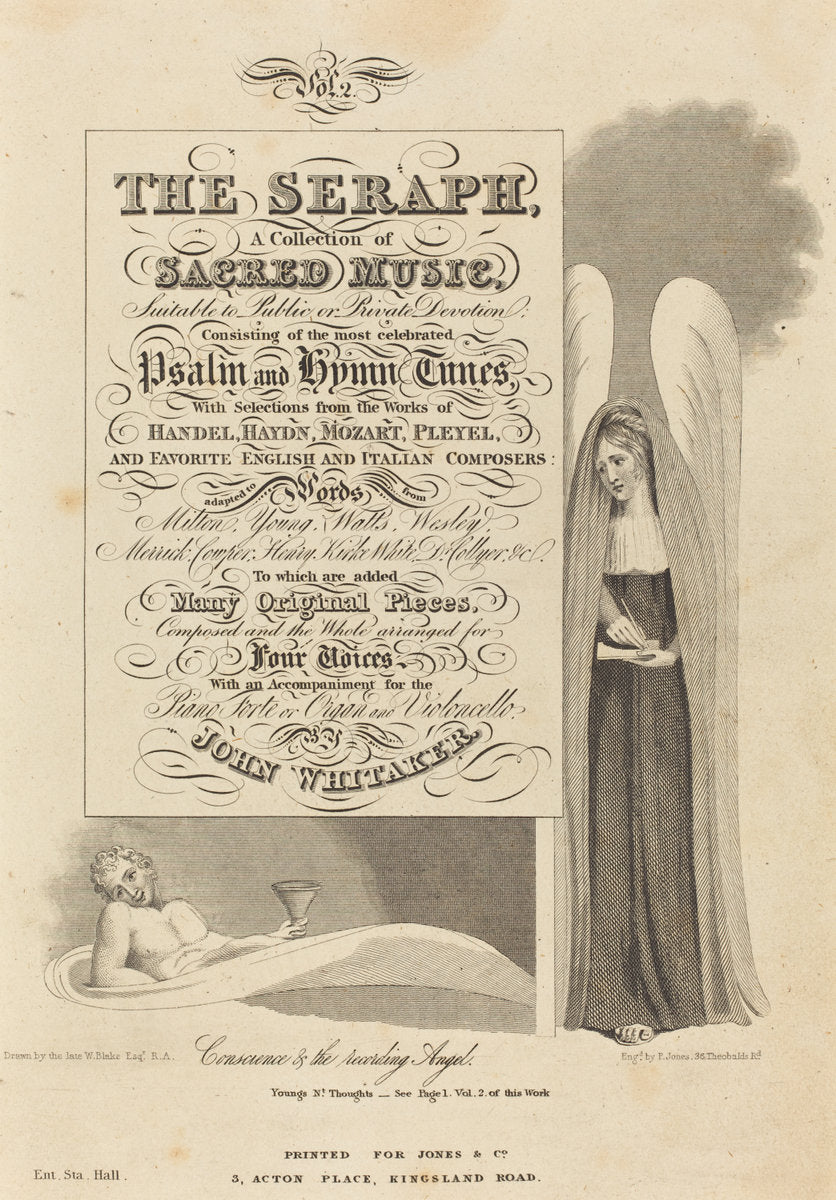 Vol. 2.
THE SERAPH,
A Collection of
SACRED MUSIC,
Suitable to Public or Private Devotion:
Consisting of the most celebrated
Psalm and Hymn Tunes,
With Selections from the Works of
HANDEL, HAYDN, MOZART, PLEYEL,
AND FAVORITE ENGLISH AND ITALIAN COMPOSERS:
adapted to Words from
Milton, Young, Watts, Wesley,
Merrick, Cowper, Henry Kirke White, Dr. Collyer, &c.
To which are added
Many Original Pieces,
Composed and the Whole arranged for
Four Voices.
With an Accompaniment for the
Piano Forte or Organ and Violoncello.
BY
JOHN WHITAKER
Drawn by the late W. Blake Esqr. R.A.
Conscience & the recording Angel.
Engd. by P. Jones. 36 Theobalds Rd.
Youngs Nt. Thoughts — See Page 1. Vol. 2. of this Work
PRINTED FOR JONES & Co.
Ent. Sta. Hall.
3, ACTON PLACE, KINGSLAND ROAD.